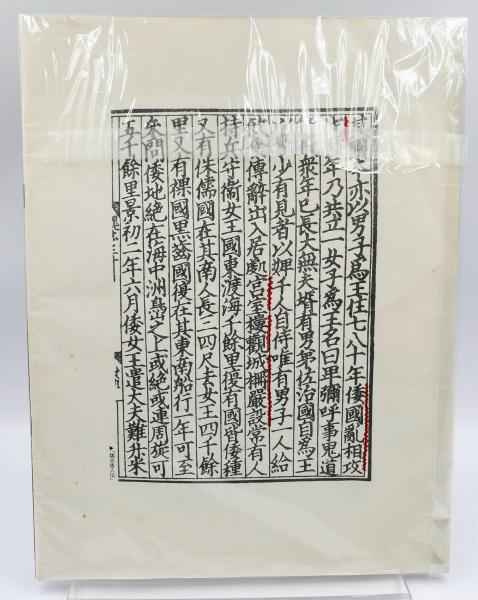 其國本亦以男子為王住七八十年倭國亂相攻
伐歷年乃共立一女子為王名曰卑彌呼事鬼道
能惑衆年已長大無夫壻有男弟佐治國自為王
以來少有見者以婢千人自侍唯有男子一人給
飲食傳辭出入居處宮室樓觀城柵嚴設常有人
持兵守衞女王國東渡海千餘里復有國皆倭種
又有侏儒國在其南人長三四尺去女王四千餘
里又有裸國黑齒國復在其東南船行一年可至
參問倭地絶在海中洲㠀之上或絶或連周旋可
五千餘里景初二年六月倭女王遣大夫難升米